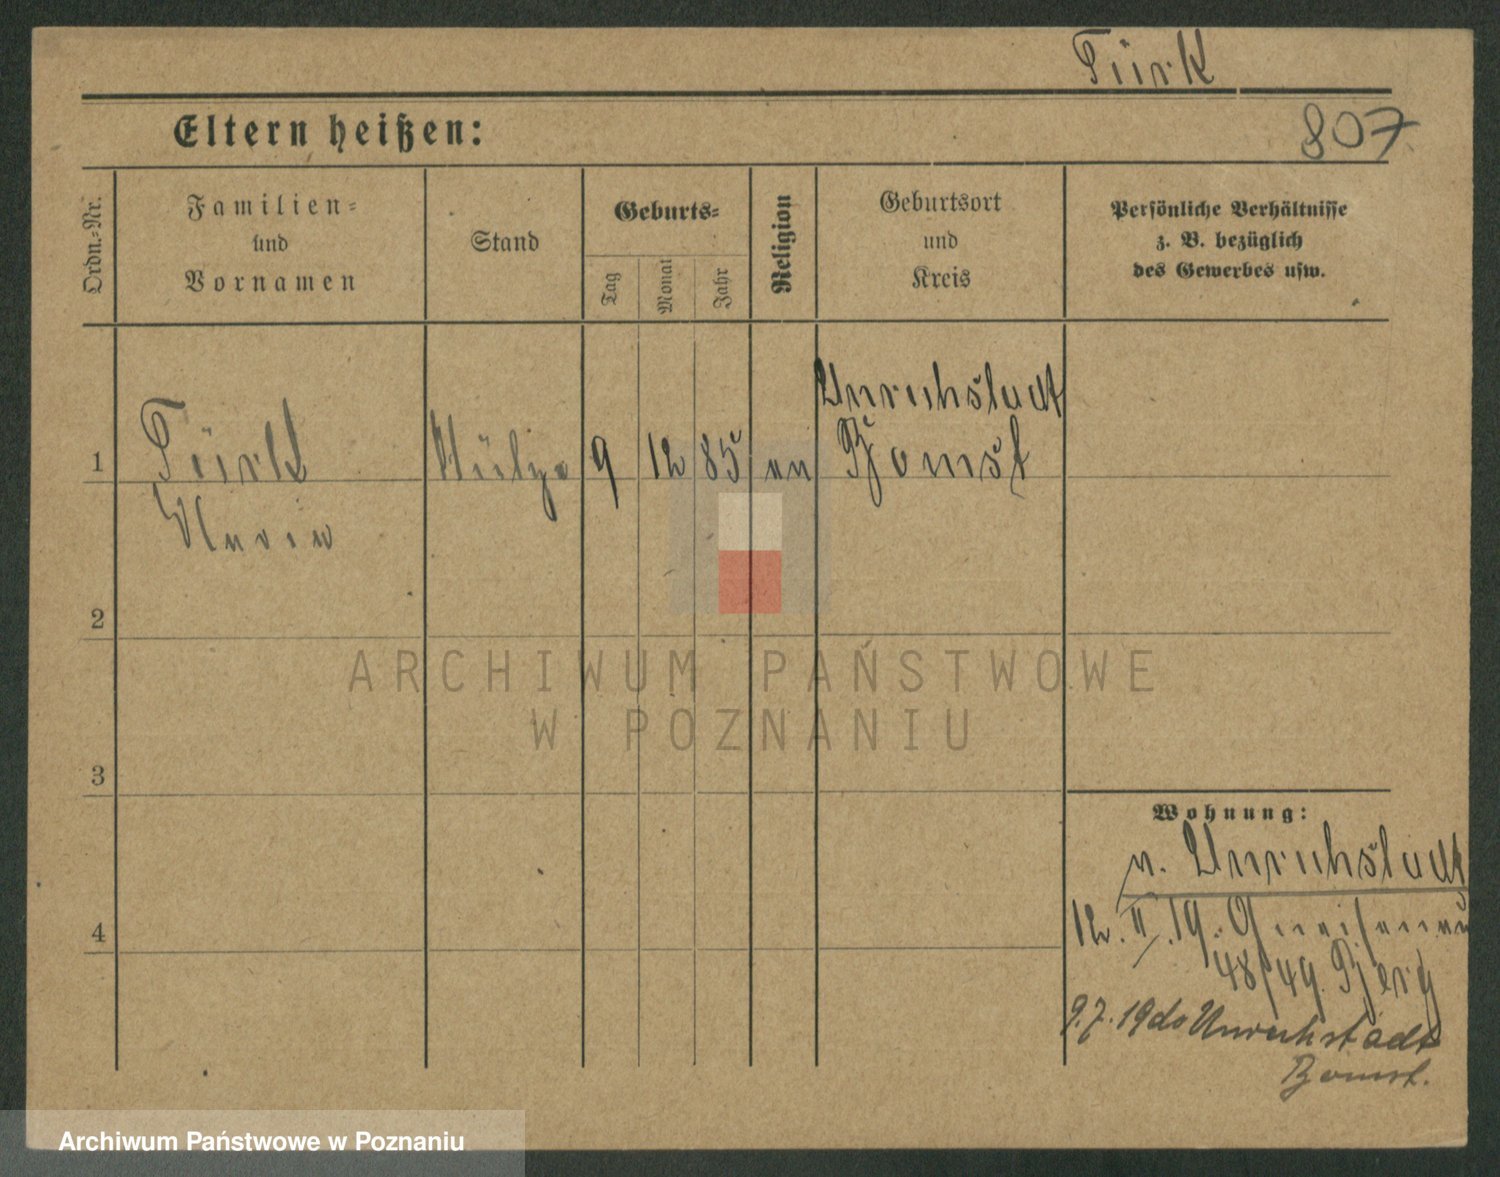 Türk
807
Eltern heißen:
Ordn.-Nr.
Familien-
und
Vornamen
Stand
Geburts-
Tag
Monat
Jahr
Religion
Geburtsort
und
Kreis
Persönliche Verhältnisse
z. B. bezüglich
des Gewerbes usw.
Unruhstadt
1 Türk 9 12 85 Bomst
2
3
4
Wohnung:
v. Unruhstadt
12. II. 19. Gneisenau
48/49. Berg
9.7.19 do Unruhstadt
Bomst.
ARCHIWUM PAŃSTWOWE
W POZNANIU
Archiwum Państwowe w Poznaniu